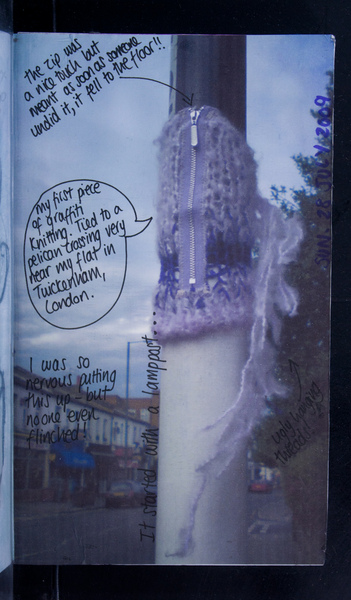 the zip was
a nice touch but
meant as soon as someone
undid it, it fell to the floor!!
My first piece
of graffiti
knitting. Tied to a
pelican crossing very
near my flat in
Twickenham,
London.
I was so
nervous putting
this up - but
no one even
flinched!
It started with a lamppost...
SUN. 28 JULY 2009
ugly hanging
threads!